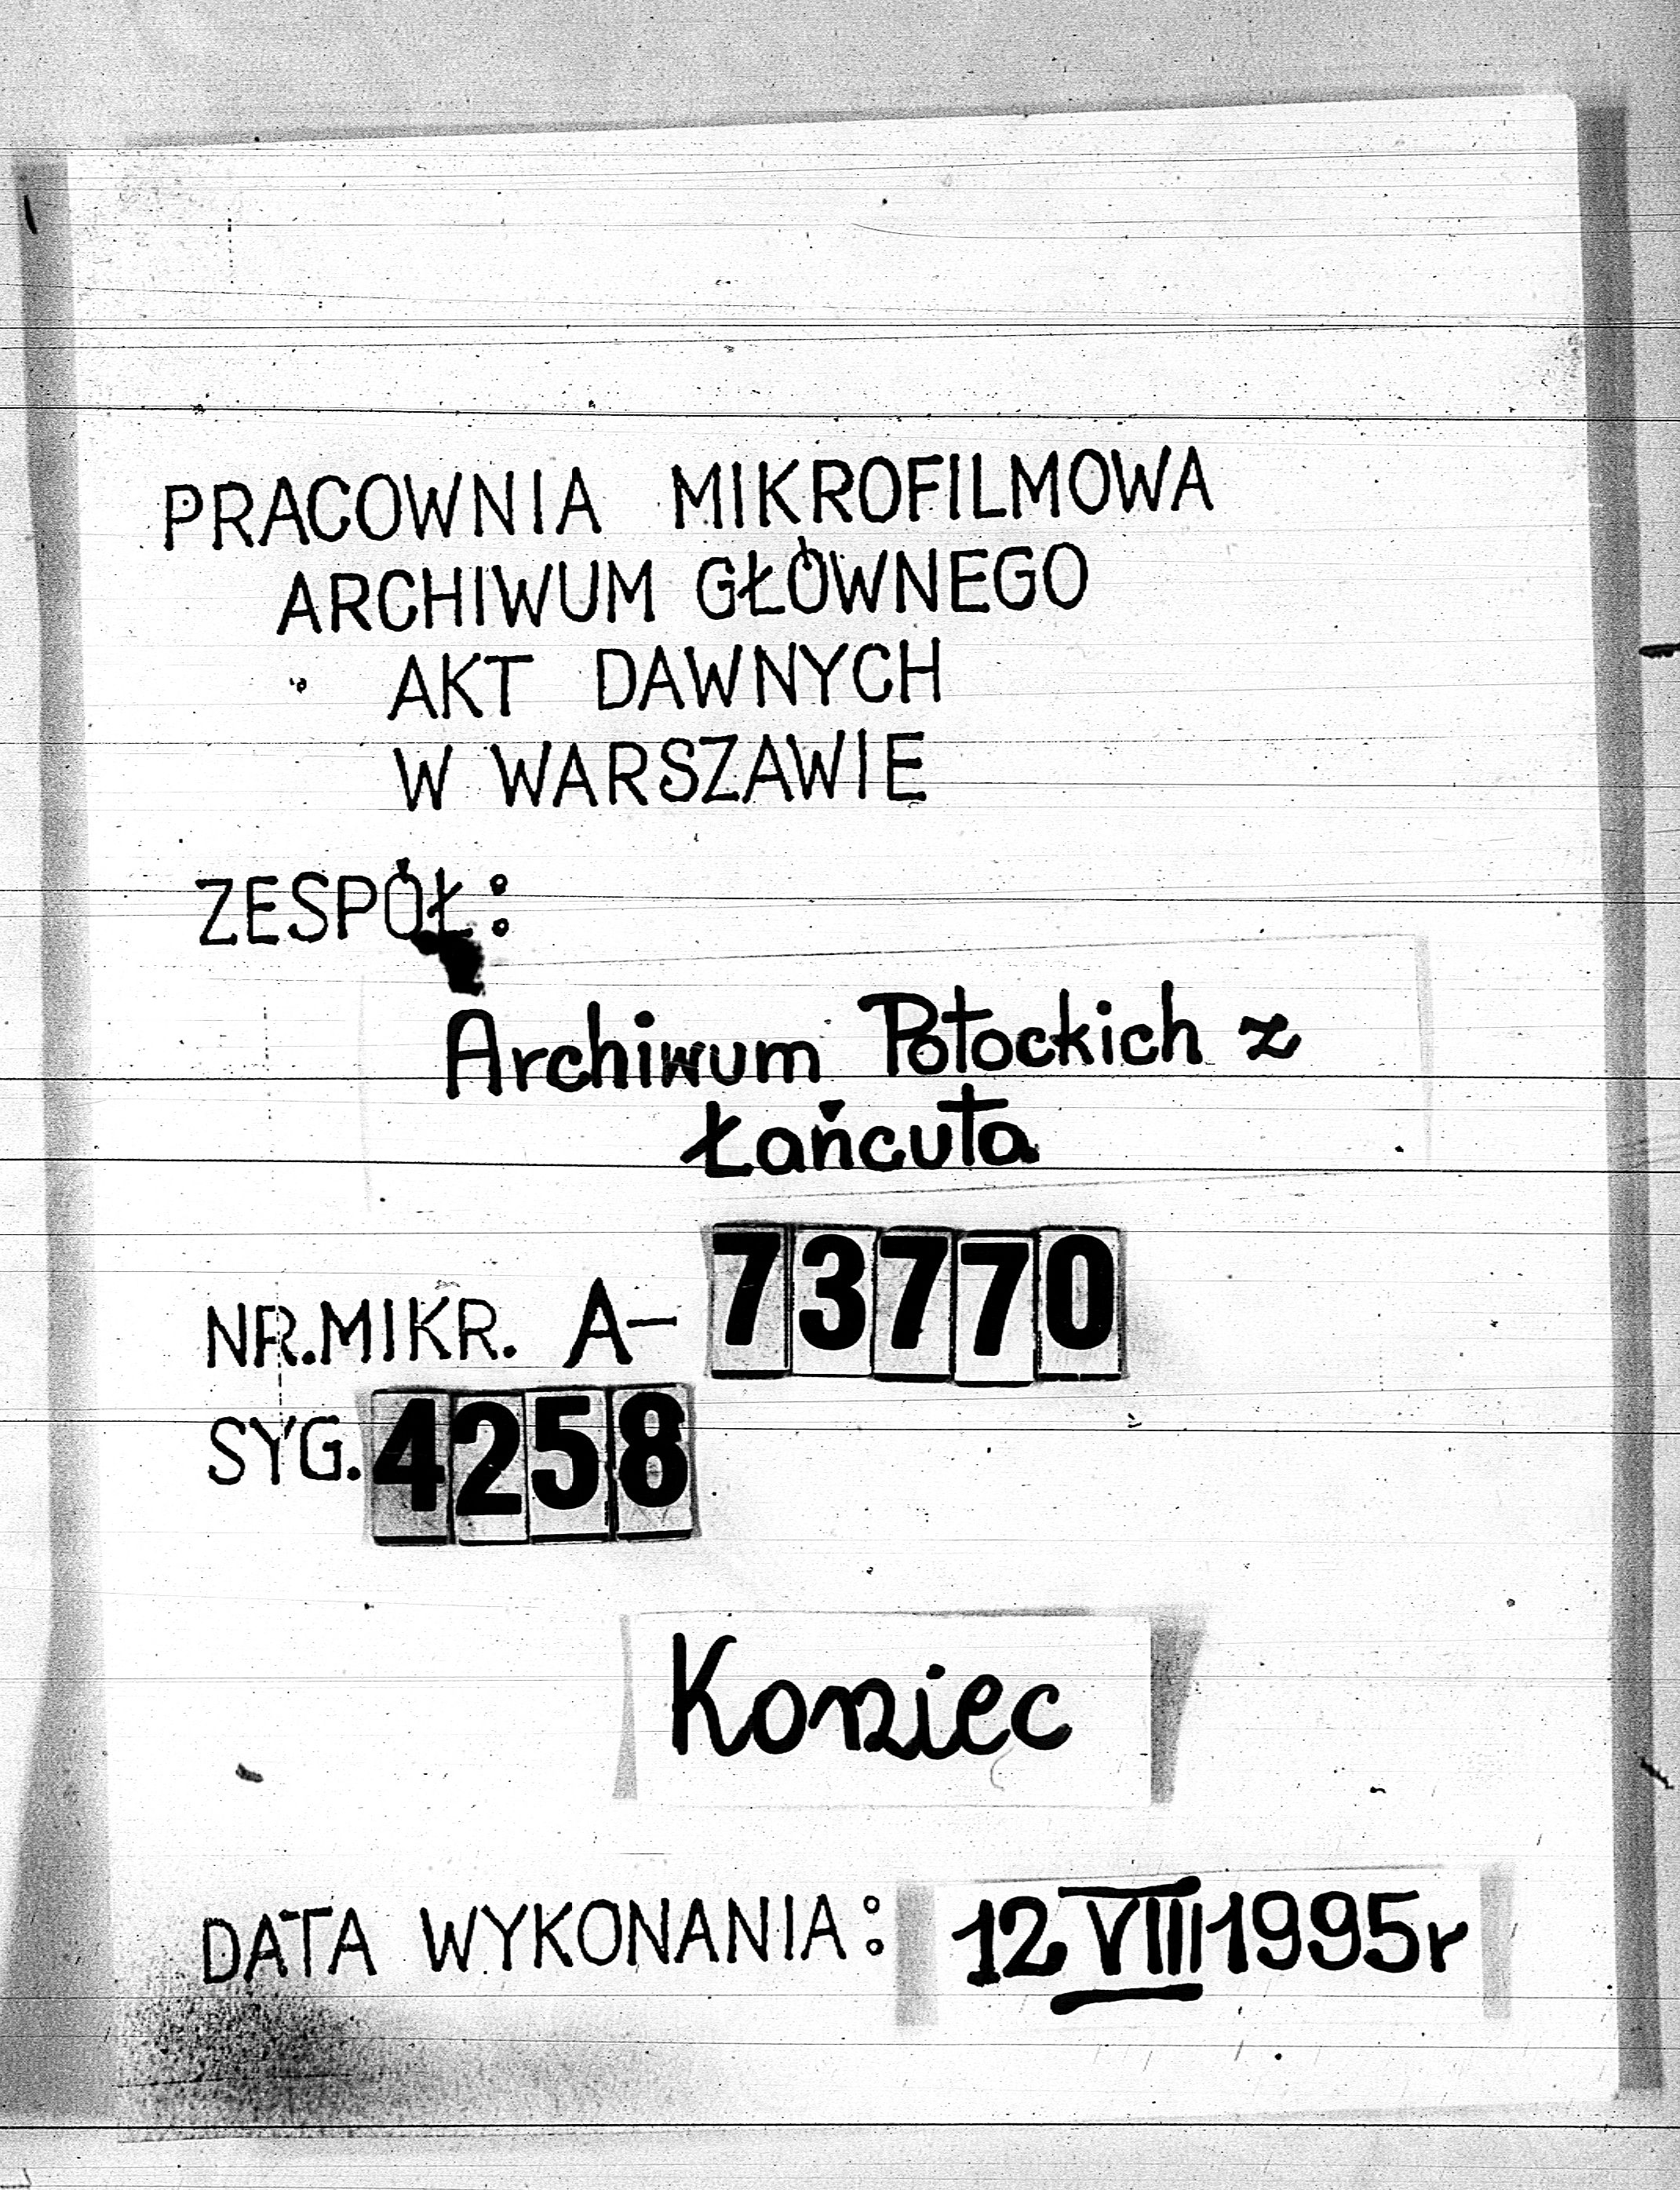 PRACOWNIA MIKROFILMOWA
ARCHIWUM GŁÓWNEGO
AKT DAWNYCH
W WARSZAWIE
ZESPÓŁ:
Archiwum Potockich z
Łańcuta
NR.MIKR. A- 73770
SYG. 4258
Koniec
DATA WYKONANIA: 12 VIII 1995r